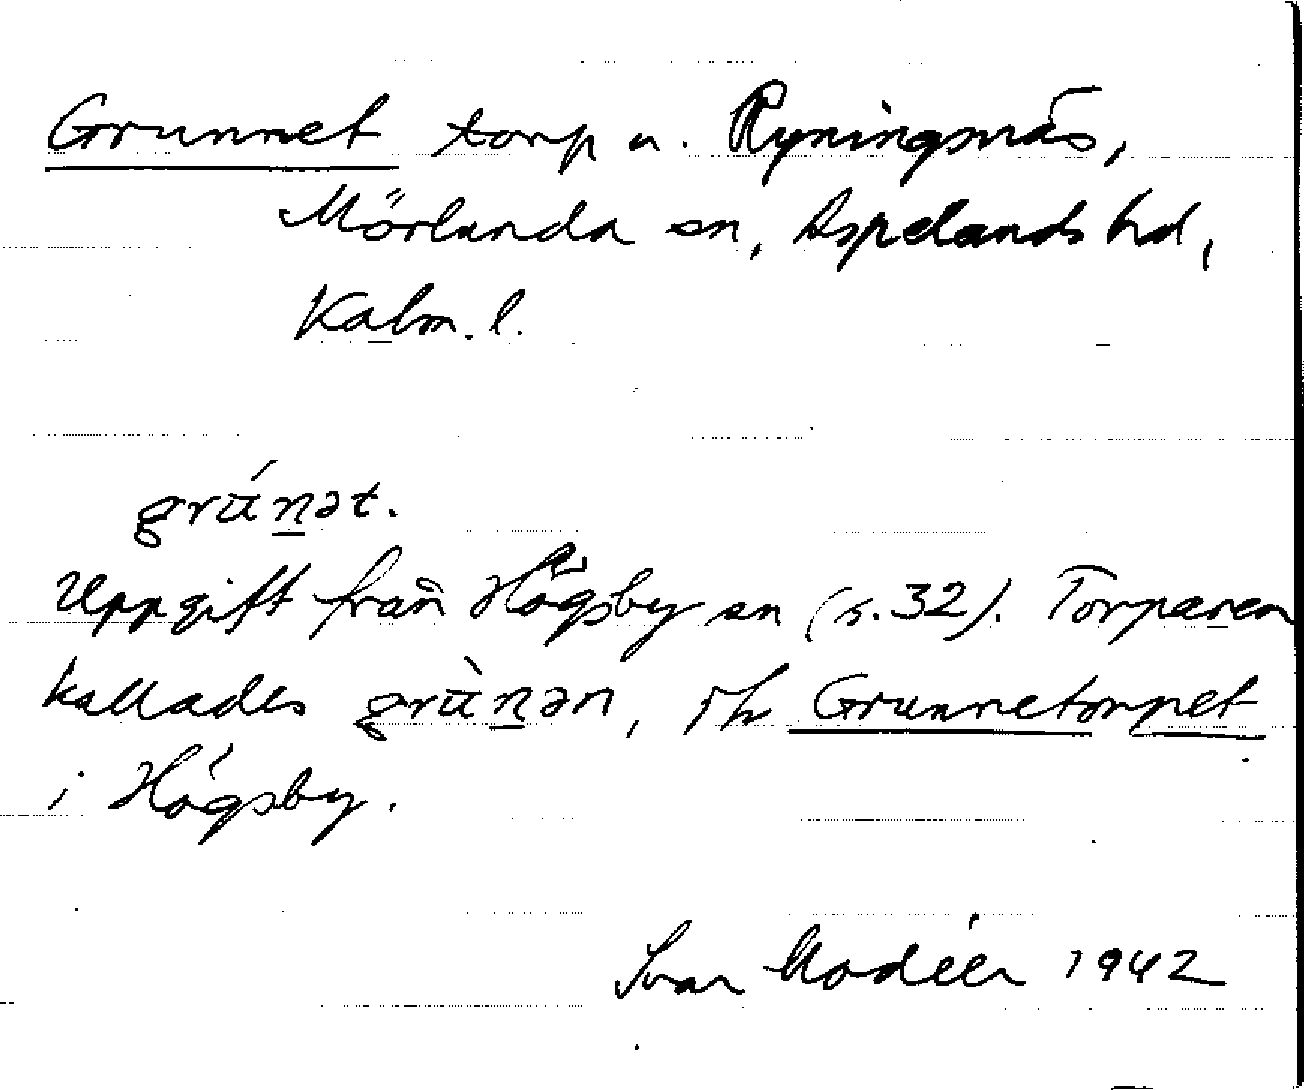 Grunnet torp u. Ryningsnäs,
Mörlunda sn, Aspelands hd,
Kalm. l.
grúnət.
Uppgift från Högsby sn (s. 32). Torparen
kallades grùnən, Grunnetorpet
i Högsby.
Ivar Modéer 1942